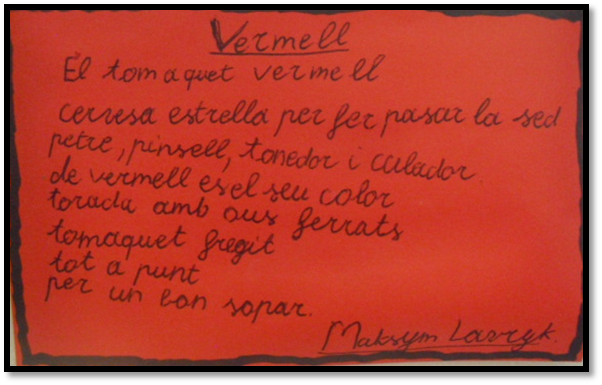 Vermell
El tomaquet vermell
cervesa estrella per fer pasar la sed
petre, pinsell, tonedor i culador
de vermell es el seu color
torada amb ous ferrats
tomaquet fregit
tot a punt
per un bon sopar.
Maksym Lavryk.